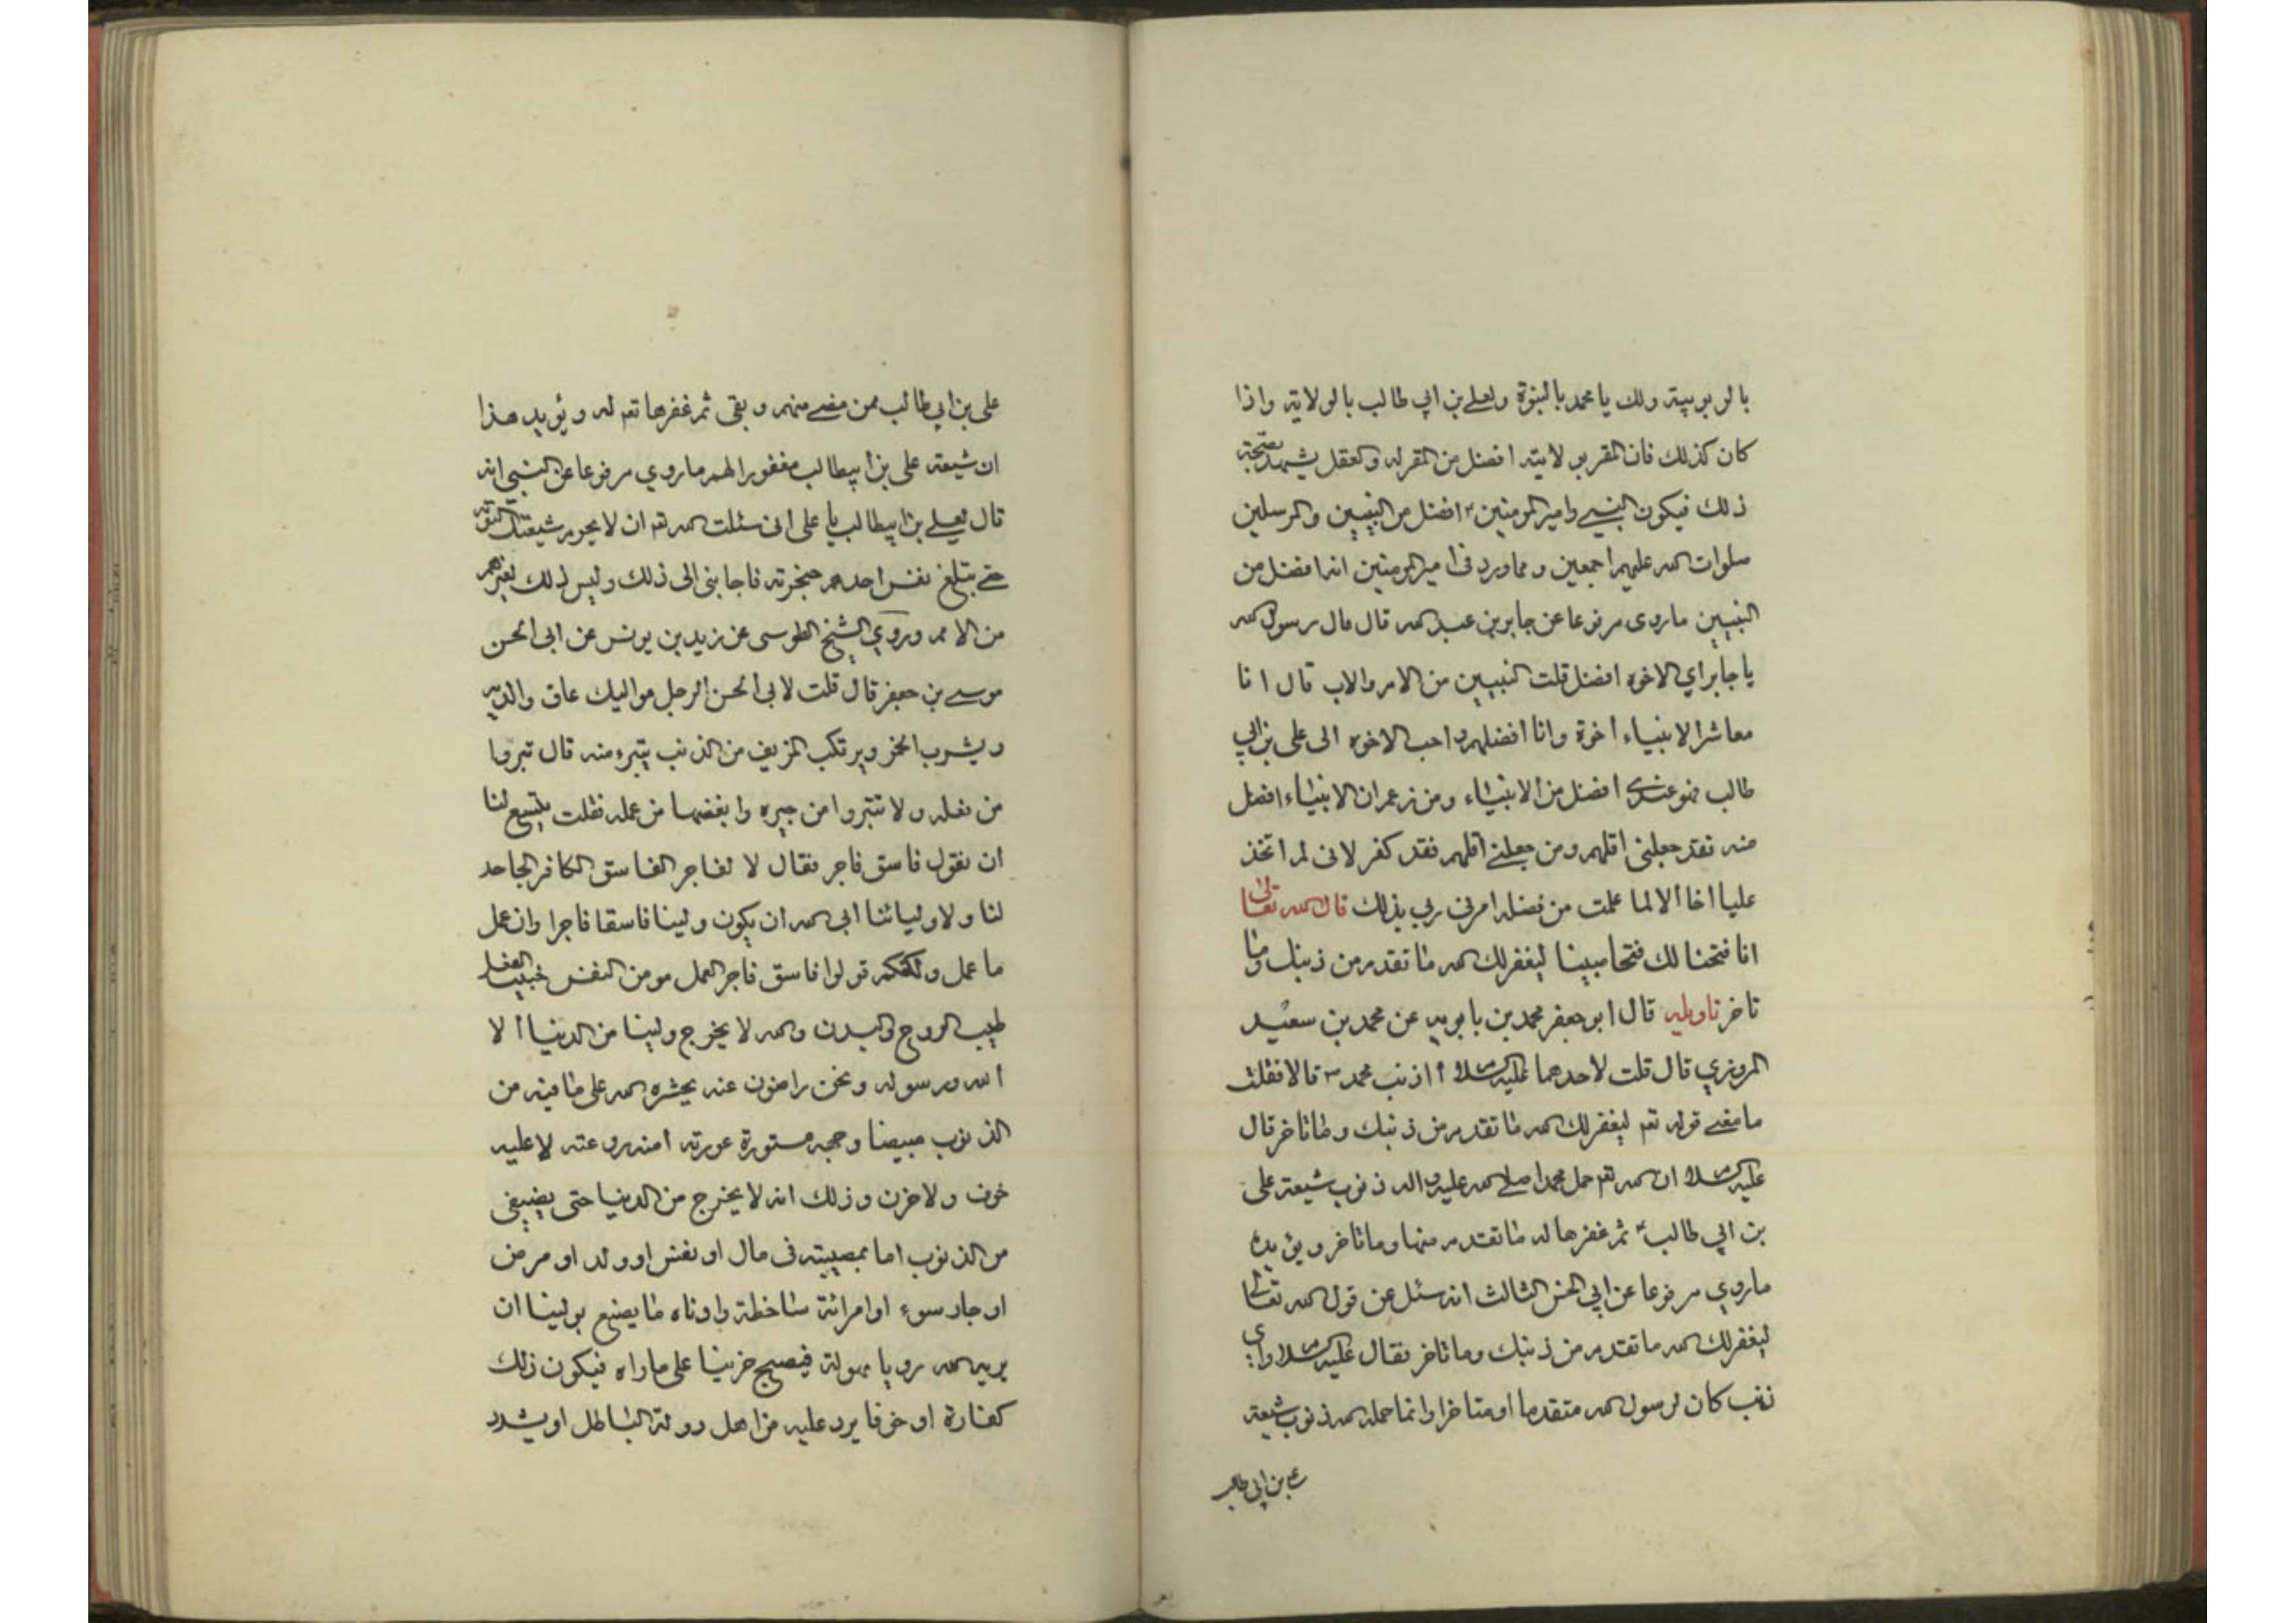 بالربوبية ولك يا محمد بالنبوة ولعلي بن ابي طالب بالولاية واذا
كان كذلك فان المقر بولايته افضل من المقر له والعقل يشهد بصحة
ذلك فيكون النبي وامير المومنين افضل من النبيين والمرسلين
صلوات الله عليهم اجمعين ومما ورد في امير المومنين انه افضل من
النبيين ماروى مرفوعا عن جابر بن عبد الله قال قال رسول الله
يا جابر اي الاخوه افضل قلت النبيين من الام والاب قال انا
معاشر الانبياء اخوة وانا افضلهم واحب الاخوه الى علي بن ابي
طالب فهو عندي افضل من الانبياء ومن زعم ان الانبياء افضل
منه فقد جعلني اقلهم ومن جعلني اقلهم فقد كفر لانى لم اتخذ
عليا اخا الا لما علمت من فضله امرني ربي بذلك قال الله تعالى
انا فتحنا لك فتحا مبينا ليغفر لك الله ما تقدم من ذنبك وما
تاخر تاويله قال ابو جعفر محمد بن بابويه عن محمد بن سعيد
المروزي قال قلت لاحدهما عليه السلام أاذنب محمد ص قال لا فقلت
ما معنى قوله تع ليغفر لك الله ما تقدم من ذنبك وما تاخر قال
عليه السلام ان الله تع حمل محمدا صلى الله عليه واله ذنوب شيعة علي
بن ابي طالب ع ثم غفرها له ما تقدم منها وما تاخر ويؤيده
ماروي مرفوعا عن ابي الحسن الثالث انه سئل عن قول الله تعالى
ليغفر لك الله ما تقدم من ذنبك وما تاخر فقال عليه السلام واي
ذنب كان لرسول الله متقدما او متاخرا وانما حمله الله ذنوب شيعة
علي بن ابي طالب
علي بن ابي طالب ممن مضى منهم وبقى ثم غفرها تع له ويؤيد هذا
ان شيعة علي بن ابيطالب مغفورا لهم ماروي مرفوعا عن النبي انه
قال لعلي بن ابيطالب يا على انى سئلت الله تع ان لا يحرم شيعتك التوبة
حتى يتبلغ نفس احدهم حنجرته فاجابنى الى ذلك وليس ذلك لغيرهم
من الامم وروي الشيخ الطوسى عن زيد بن يونس عن ابى الحسن
موسى بن جعفر قال قلت لابى الحسن الرجل مواليك عاق والديه
ويشرب الخمر ويرتكب المزيف من الذنب يتبرء منه قال تبروا
من فعله ولا تتبروا من خيره وابغضها من عمله فقلت يتسع لنا
ان نقول فاسق فاجر فقال لا لفاجر الفاسق الكافر الجاحد
لنا ولاوليائنا ابى الله ان يكون ولينا فاسقا فاجرا وان عمل
ما عمل ولكنكم قولوا فاسق فاجر العمل مومن النفس خبيث الفعل
طيب الروح والبدن والله لا يخرج ولينا من الدنيا ألا
الله ورسوله ونحن راضون عنه يحشره الله على ما فيه من
الذنوب مبيضا وجهه مستورة عورته امنه روعته لا عليه
خوف ولا حزن وذلك انه لا يخرج من الدنيا حتى يضيفى
من الذنوب اما بمصيبة فى مال او نفس او ولد او مرض
او جار سوء او امرائة ساخطة وادناه ما يصنع بولينا ان
يريه الله رويا مهولة فيصبح حزينا على ماراه فيكون ذلك
كفارة او خوفا يرد عليه من اهل دولة الباطل او يشدد